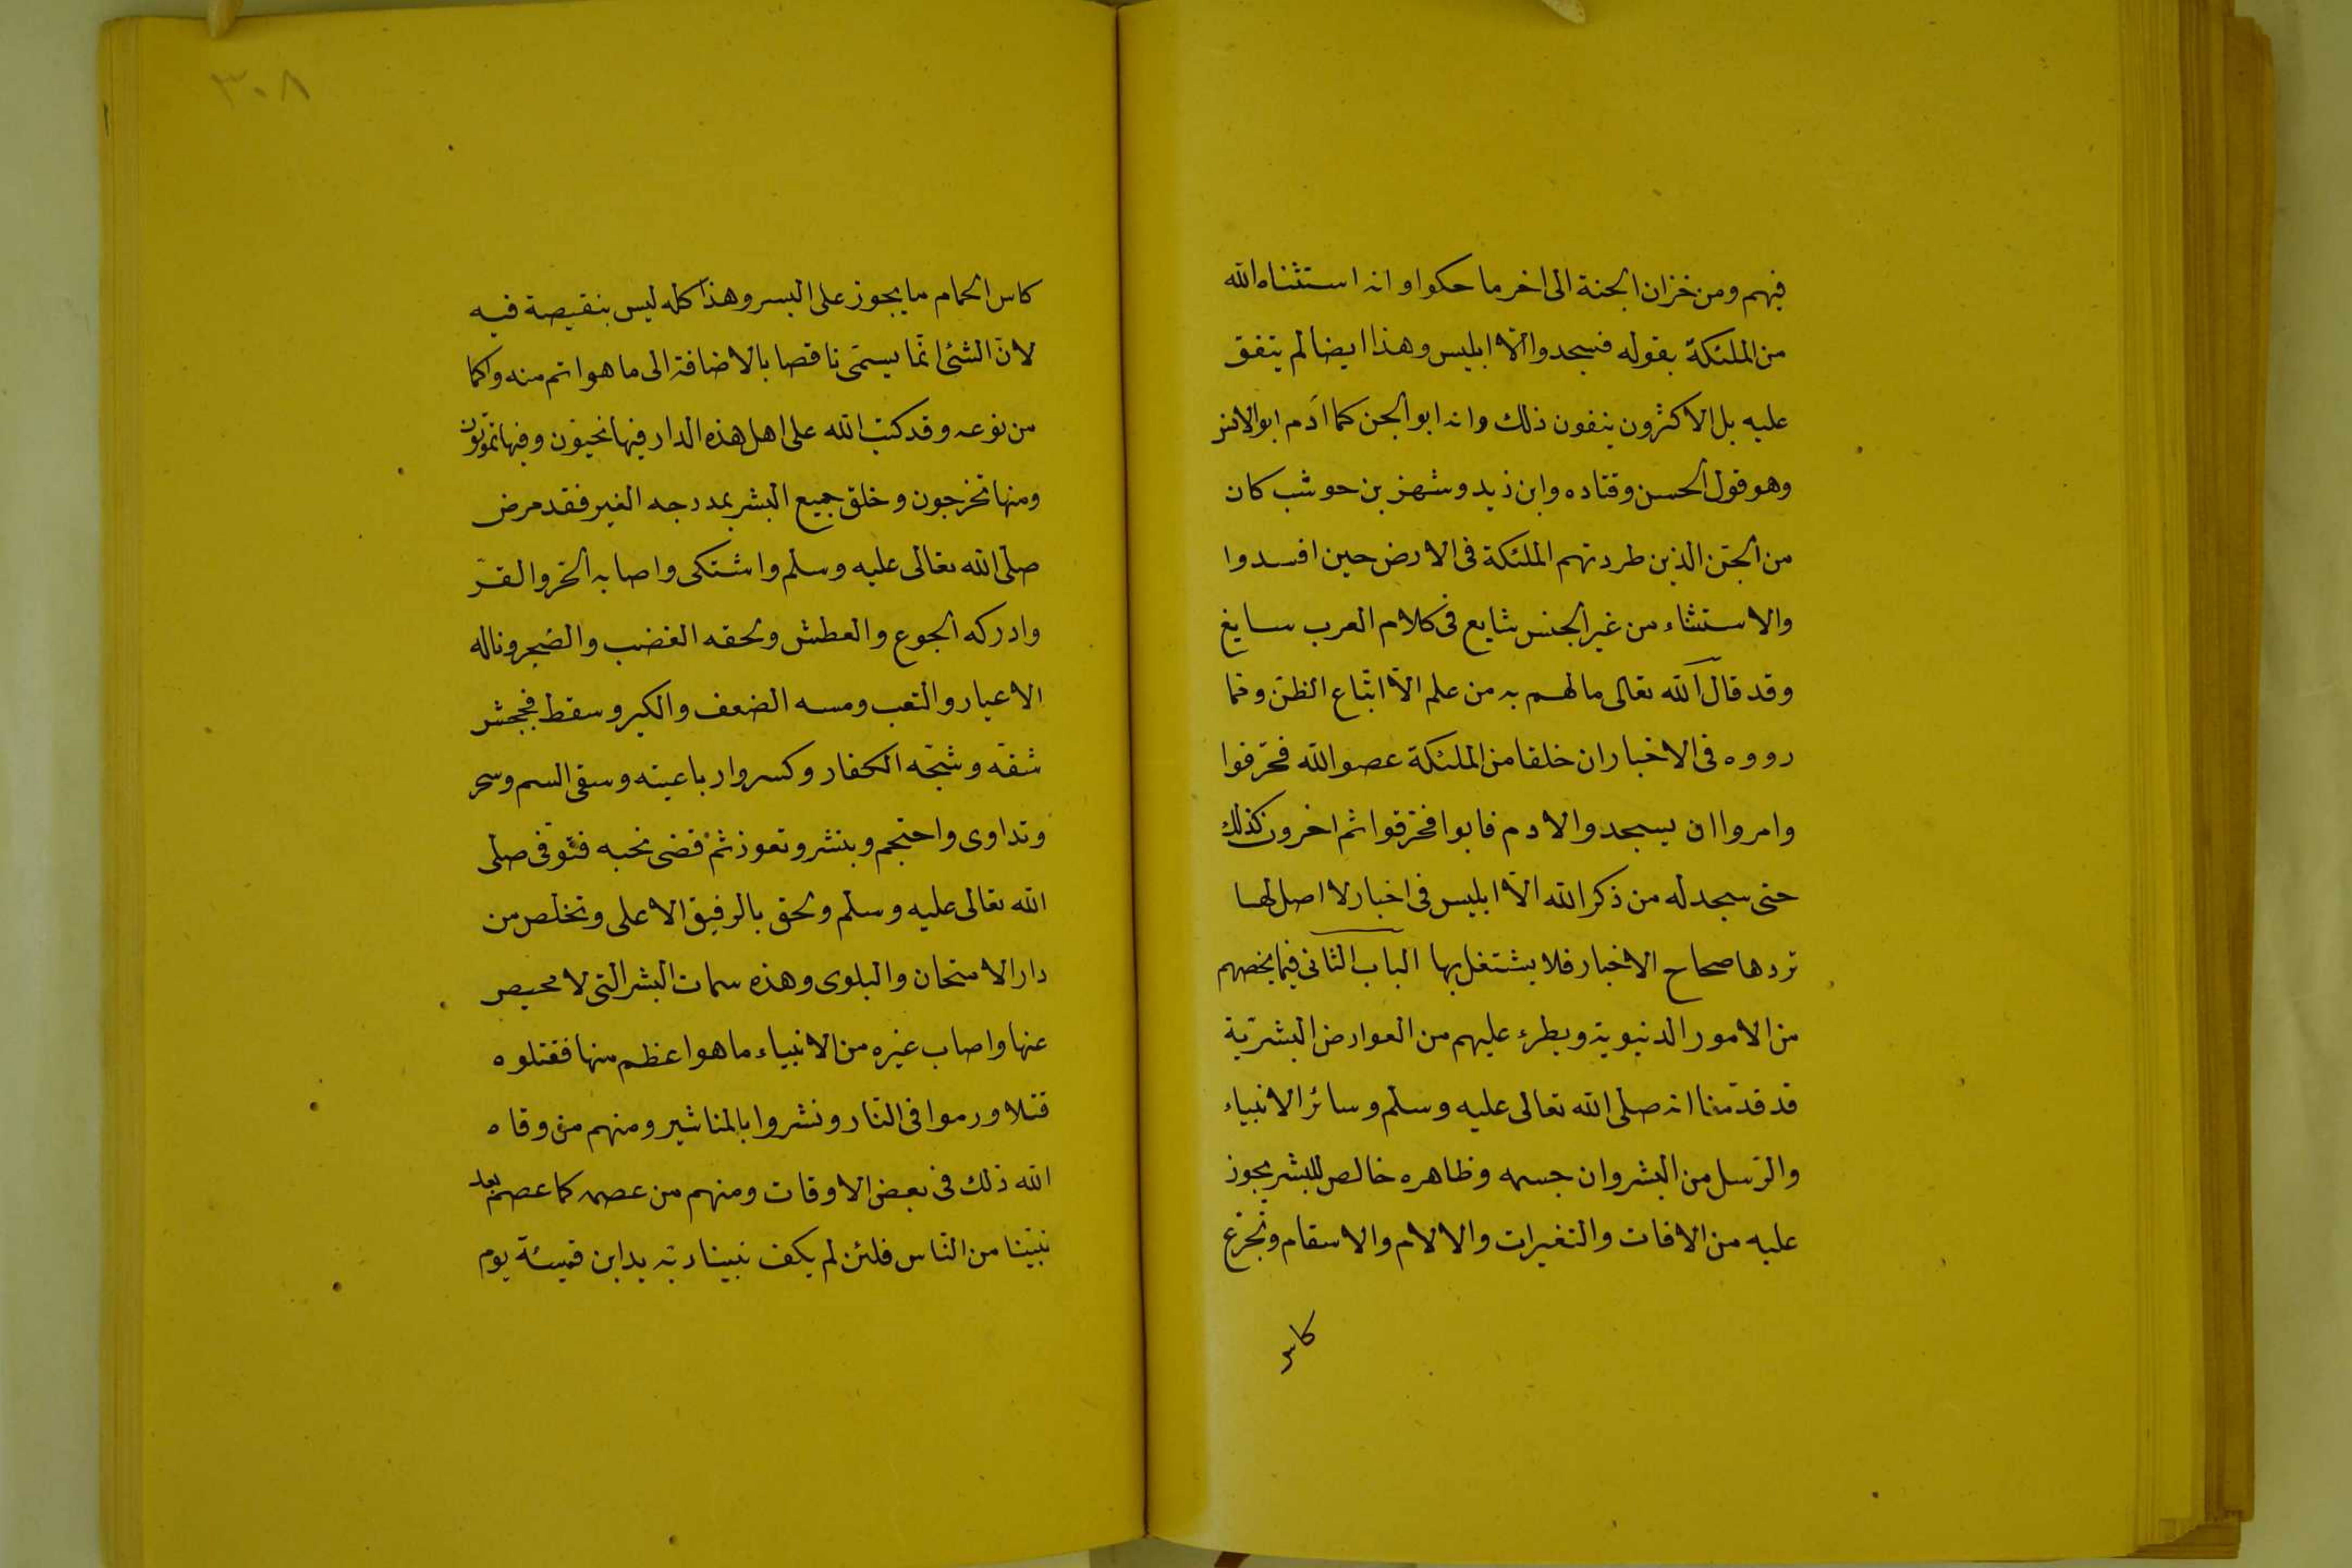 فيهم ومن خزان الجنة الى اخر ما حكوا وانه استثناه الله
من الملئكة بقوله فسجدوا الّا ابليس وهذا ايضا لم يتفق
عليه بل الاكثرون ينفون ذلك وانه ابو الجن كما ادم ابو الانس
وهو قول الحسن وقتاده وابن زيد وشهر بن حوشب كان
من الجنّ الذين طردتهم الملئكة فى الارض حين افسدوا
والاستثناء من غير الجنس شايع فى كلام العرب سايغ
وقد قال الله تعالى ما لهم به من علم الّا اتّباع الظنّ ومما
رووه فى الاخبار ان خلقا من الملئكة عصوا الله فحرّفوا
وامروا ان يسجدوا لادم فابوا فحرّقوا ثم اخرون كذلك
حتى سجد له من ذكر الله الّا ابليس فى اخبار لا اصل لها
تردها صحاح الاخبار فلا يشتغل بها الباب الثانى فيما يخصهم
من الامور الدنيوية ويطرء عليهم من العوارض البشريّة
قد قدّمنا انه صلى الله تعالى عليه وسلم وسائر الانبياء
والرّسل من البشر وان جسمه وظاهره خالص للبشر يجوز
عليه من الافات والتغيرات والالام والاسقام وتجرّع
كاس
٣٠٨
كاس الحمام ما يجوز على البسر وهذا كله ليس بنقيصة فيه
لانّ الشئ انّما يسمّى ناقصا بالاضافة الى ما هو اتم منه واكمل
من نوعه وقد كتب الله على اهل هذه الدار فيها تحيون وفيها تموتون
ومنها تخرجون وخلق جميع البشر بمدرجه الغير فقد مرض
صلّى الله تعالى عليه وسلم واشتكى واصابه الحرّ والقرّ
وادركه الجوع والعطش ولحقه الغضب والضجر وناله
الاعياء والتعب ومسه الضعف والكبر وسقط فجحش
شقه وشجّه الكفار وكسروا رباعيته وسقى السم وسحر
وتداوى واحتجم وبنشر وتعوذ ثمّ قضى نحبه فتوفى صلى
الله تعالى عليه وسلم ولحق بالرفيق الاعلى وتخلّص من
دار الامتحان والبلوى وهذه سمات البشر التى لا محيص
عنها واصاب غيره من الانبياء ما هو اعظم منها فقتلوه
قتلا ورموا فى النار ونشروا بالمناشير ومنهم من وقاه
الله ذلك فى بعض الاوقات ومنهم من عصمه كما عصم بعد
نبيّنا من النّاس فلئن لم يكف نبينا ربّه يد ابن قميئة يوم